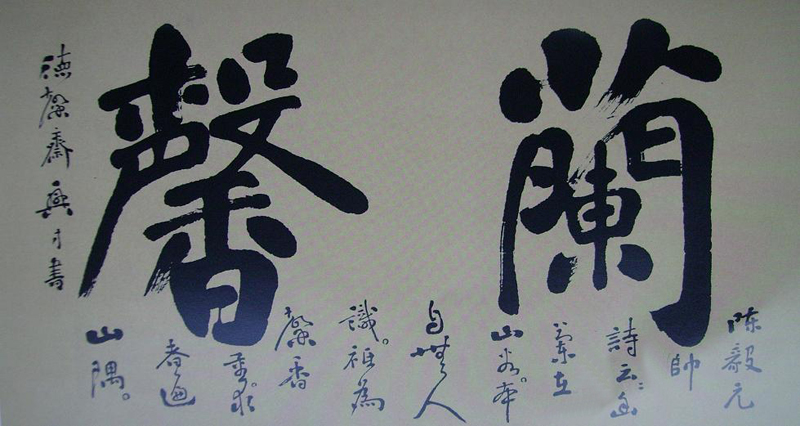 蘭馨
陈毅元
帥
詩云:幽
蘭在
山谷本
自無人
識。祗為
馨香
重。求
者遍
山隅。
德馨齋興才書